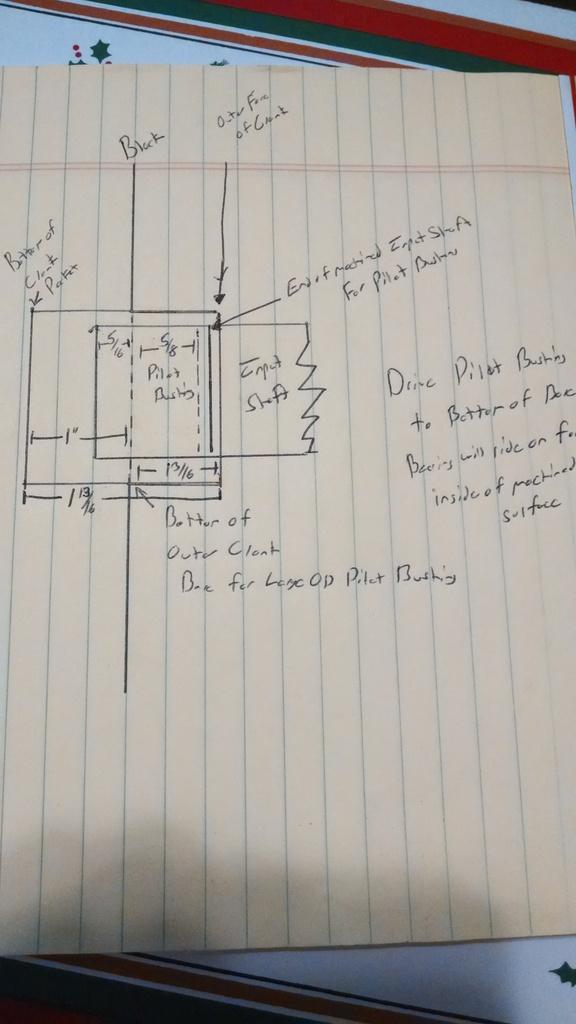 Block
Outer Face
of Crank
Bottom of
Crank
Pocket
End of machined Input Shaft
For Pilot Bushing
5/16
5/8
Pilot
Bushing
Input
Shaft
1"
13/16
1 13/16
Drive Pilot Bushing
to Bottom of Bore
Bearing will ride on
inside of machined
surface
Bottom of
Outer Crank
Bore for Large OD Pilot Bushing